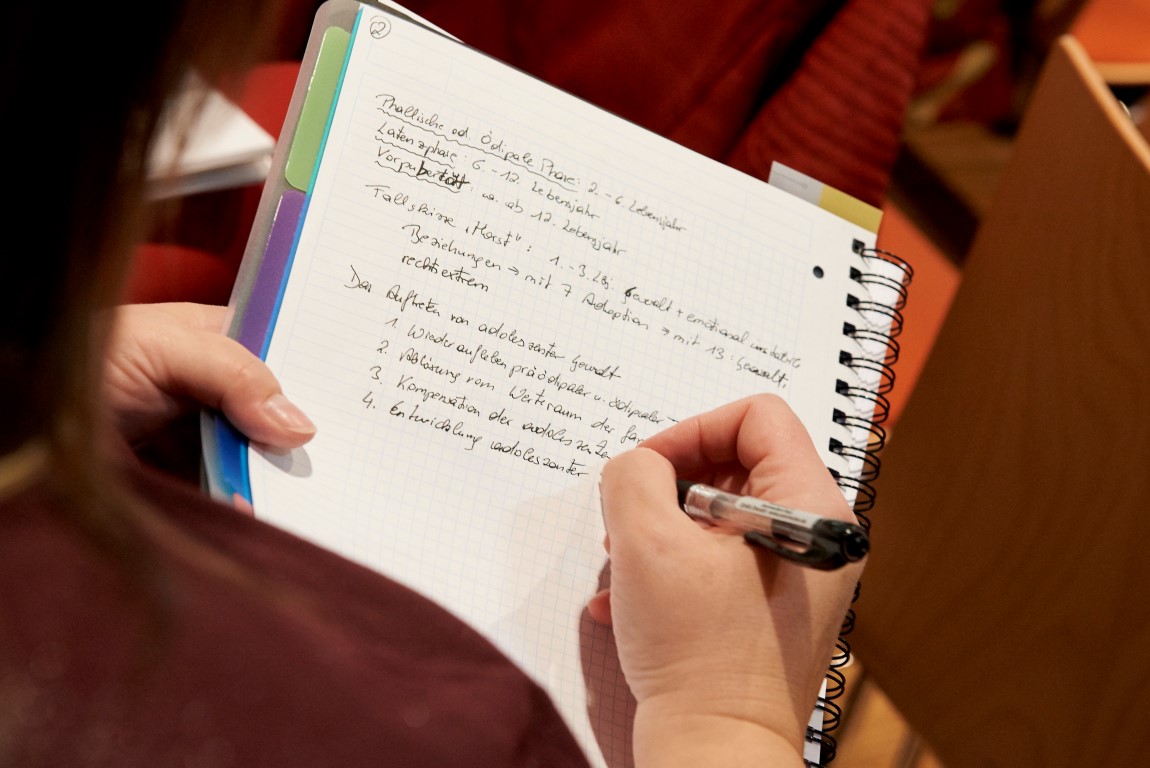 2
Phallische od. Ödipale Phase: 2. - 6. Lebensjahr
Latenzphase: 6. - 12. Lebensjahr
Vorpubertät, u. ab 12. Lebensjahr
Fallskizze „Horst“: 1. - 3. Lbj: Gewalt + emotional instabile
Beziehungen → mit 7 Adoption → mit 13: Gewalt,
rechtsextrem
Das Auftreten von adoleszenter Gewalt
1. Wiederaufleben präödipaler u. ödipaler
2. Ablösung vom der
3. Kompensation der adoleszenten
4. Entwicklung adoleszenter